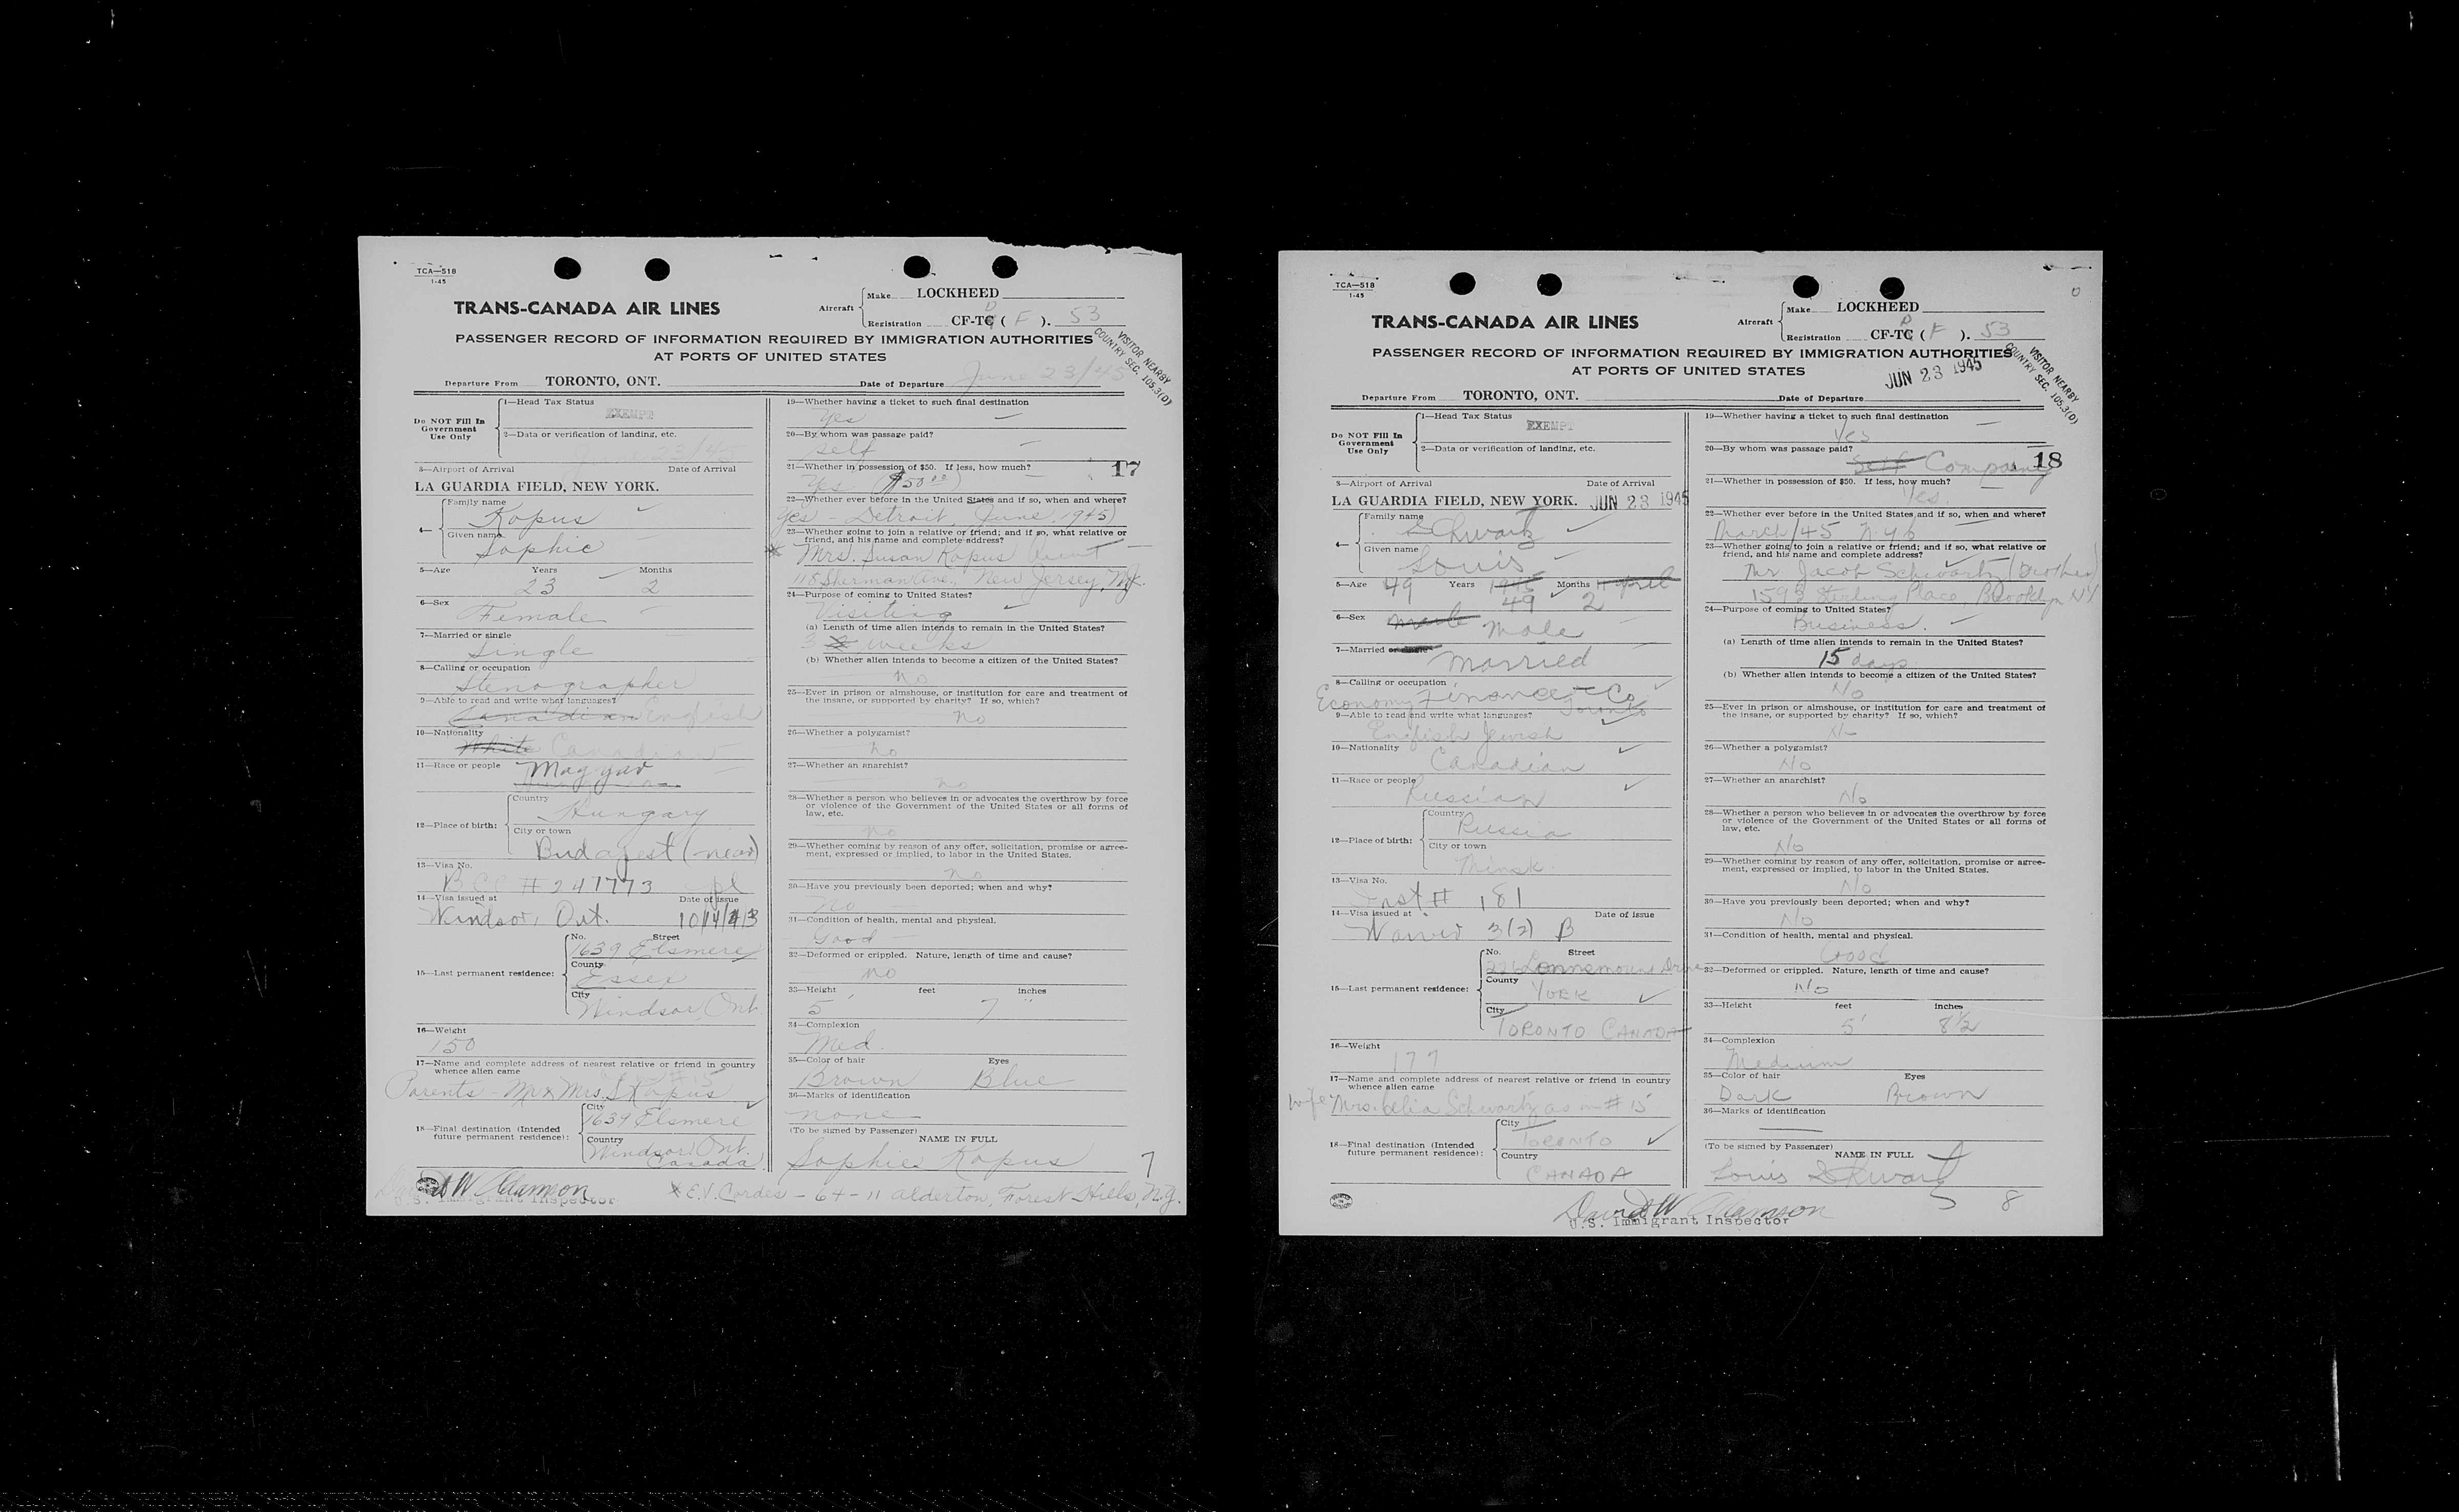 TCA—518
1-45
TRANS-CANADA AIR LINES
Aircraft
Make LOCKHEED
Registration CF-TC ( F ). 53
D
PASSENGER RECORD OF INFORMATION REQUIRED BY IMMIGRATION AUTHORITIES
AT PORTS OF UNITED STATES
VISITOR NEARBY
COUNTRY SEC. 105.3(D)
Departure From TORONTO, ONT.
Date of Departure June 23/45
Do NOT Fill In
Government
Use Only
1—Head Tax Status
EXEMPT
2—Data or verification of landing, etc.
June 23/45
3—Airport of Arrival Date of Arrival
LA GUARDIA FIELD, NEW YORK.
4—
Family name
Kopus
Given name
Sophie
5—Age Years Months
23 2
6—Sex
Female
7—Married or single
Single
8—Calling or occupation
Stenographer
9—Able to read and write what languages?
Canadian English
10—Nationality
White Canadian
11—Race or people Magyar
12—Place of birth:
Country
Hungary
City or town
Budapest (near)
13—Visa No.
BCC # 247773
14—Visa issued at Date of issue
Windsor, Ont. 10/4/43
15—Last permanent residence:
No. Street
1639 Elsmere
County
Essex
City
Windsor, Ont.
16—Weight
150
17—Name and complete address of nearest relative or friend in country
whence alien came
Parents - Mr x Mrs. S Kopus
18—Final destination (Intended
future permanent residence):
City
1639 Elsmere
Country
Windsor Ont.
Canada
19—Whether having a ticket to such final destination
Yes
20—By whom was passage paid?
self
21—Whether in possession of $50. If less, how much?
17
Yes ($50.00)
22—Whether ever before in the United States and if so, when and where?
Yes - Detroit, June, 1945
23—Whether going to join a relative or friend; and if so, what relative or
friend, and his name and complete address?
Mrs. Susan Kopus Aunt
118 Sherman Ave., New Jersey, N.J.
24—Purpose of coming to United States?
Visiting
(a) Length of time alien intends to remain in the United States?
3 weeks
(b) Whether alien intends to become a citizen of the United States?
No
25—Ever in prison or almshouse, or institution for care and treatment of
the insane, or supported by charity? If so, which?
No
26—Whether a polygamist?
No
27—Whether an anarchist?
No
28—Whether a person who believes in or advocates the overthrow by force
or violence of the Government of the United States or all forms of
law, etc.
No
29—Whether coming by reason of any offer, solicitation, promise or agree-
ment, expressed or implied, to labor in the United States.
No
30—Have you previously been deported; when and why?
No
31—Condition of health, mental and physical.
Good
32—Deformed or crippled. Nature, length of time and cause?
No
33—Height feet inches
5' 7"
34—Complexion
Med.
35—Color of hair Eyes
Brown Blue
36—Marks of identification
none
(To be signed by Passenger)
NAME IN FULL
Sophie Kopus
7
David W Adamson
U.S. Immigrant Inspector
x E.V. Cordes - 64-11 Alderton, Forest Hills, N.Y.
TCA—518
1-45
TRANS-CANADA AIR LINES
Aircraft
Make LOCKHEED
Registration CF-TC ( F ). 53
D
PASSENGER RECORD OF INFORMATION REQUIRED BY IMMIGRATION AUTHORITIES
AT PORTS OF UNITED STATES
JUN 23 1945
VISITOR NEARBY
COUNTRY SEC. 105.3(D)
Departure From TORONTO, ONT.
Date of Departure
Do NOT Fill In
Government
Use Only
1—Head Tax Status
EXEMPT
2—Data or verification of landing, etc.
3—Airport of Arrival Date of Arrival
LA GUARDIA FIELD, NEW YORK. JUN 23 1945
4—
Family name
Schwartz
Given name
Louis
5—Age 49 Years 1945 Months April
49 2
6—Sex male Male
7—Married or single
Married
8—Calling or occupation
Economy Finance Co
Toronto
9—Able to read and write what languages?
English Jewish
10—Nationality
Canadian
11—Race or people
Russian
12—Place of birth:
Country
Russia
City or town
Minsk
13—Visa No.
Inst # 181
14—Visa issued at Date of issue
Waiver 3(2) B
15—Last permanent residence:
No. Street
Lonnsmount Drive
County
YORK
City
TORONTO CANADA
16—Weight
177
17—Name and complete address of nearest relative or friend in country
whence alien came
wife Mrs. Celia Schwartz as in # 15
18—Final destination (Intended
future permanent residence):
City
TORONTO
Country
CANADA
19—Whether having a ticket to such final destination
Yes
20—By whom was passage paid?
Self Company
18
21—Whether in possession of $50. If less, how much?
Yes.
22—Whether ever before in the United States and if so, when and where?
March/45 N.Y.C.
23—Whether going to join a relative or friend; and if so, what relative or
friend, and his name and complete address?
Mr. Jacob Schwartz (Brother)
1593 Sterling Place, Brooklyn NY
24—Purpose of coming to United States?
Business.
(a) Length of time alien intends to remain in the United States?
15 days
(b) Whether alien intends to become a citizen of the United States?
No
25—Ever in prison or almshouse, or institution for care and treatment of
the insane, or supported by charity? If so, which?
No
26—Whether a polygamist?
No
27—Whether an anarchist?
No
28—Whether a person who believes in or advocates the overthrow by force
or violence of the Government of the United States or all forms of
law, etc.
No
29—Whether coming by reason of any offer, solicitation, promise or agree-
ment, expressed or implied, to labor in the United States.
No
30—Have you previously been deported; when and why?
No
31—Condition of health, mental and physical.
Good
32—Deformed or crippled. Nature, length of time and cause?
No
33—Height feet inches
5' 8½
34—Complexion
Medium
35—Color of hair Eyes
Dark Brown
36—Marks of identification
(To be signed by Passenger)
NAME IN FULL
Louis Schwartz
8
David W Adamson
U.S. Immigrant Inspector